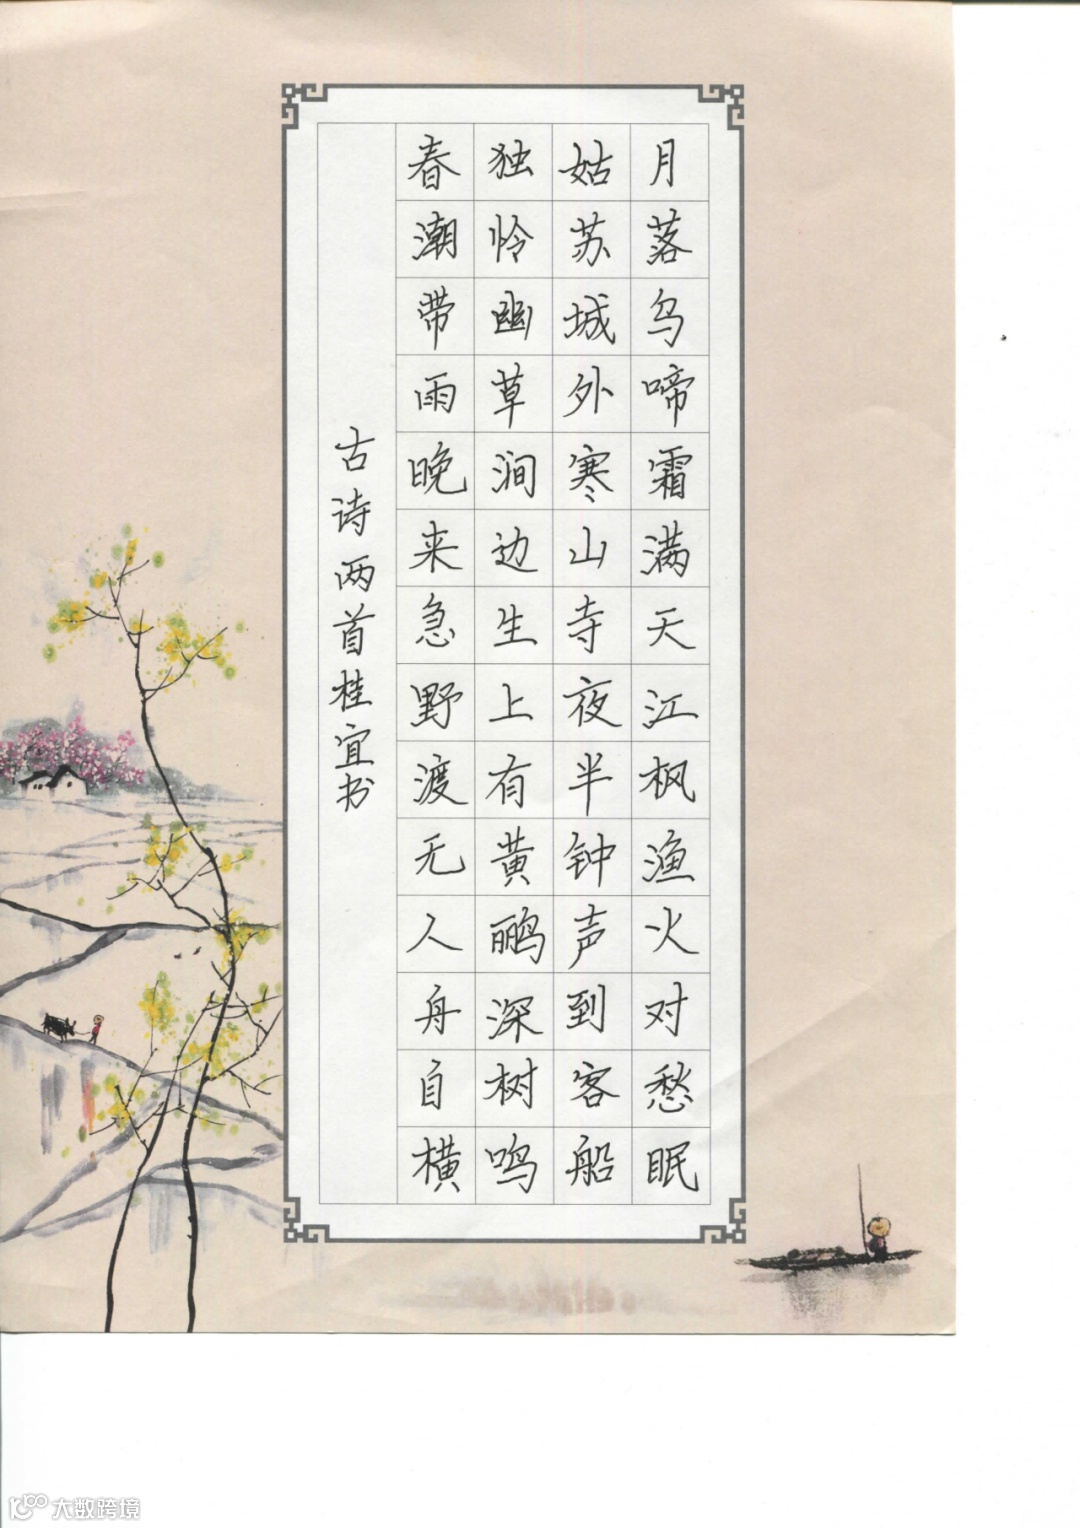 月落乌啼霜满天江枫渔火对愁眠
姑苏城外寒山寺夜半钟声到客船
独怜幽草涧边生上有黄鹂深树鸣
春潮带雨晚来急野渡无人舟自横
古诗两首桂宜书
大数跨境